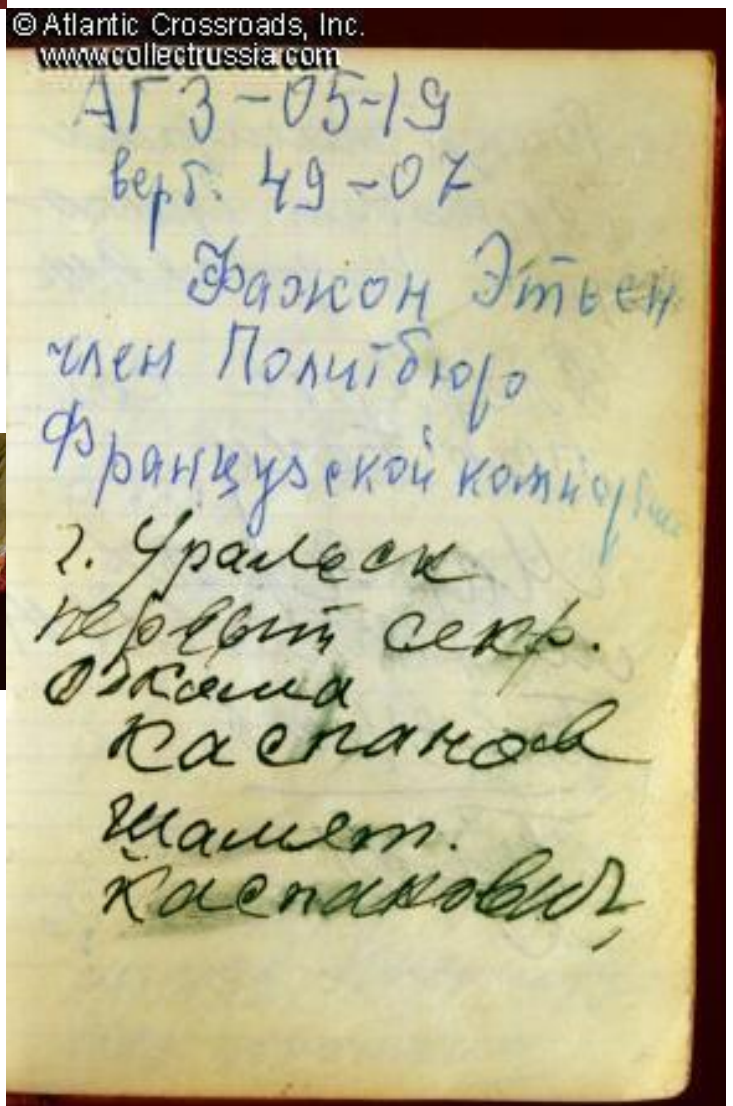 © Atlantic Crossroads, Inc.
www.collectrussia.com
АГ3-05-19
верт. 49-07
Фажон Этьен
член Политбюро
Французской компартии
г. Уральск
первый секр.
обкома
Каспанов
Шамет.
Каспакович,